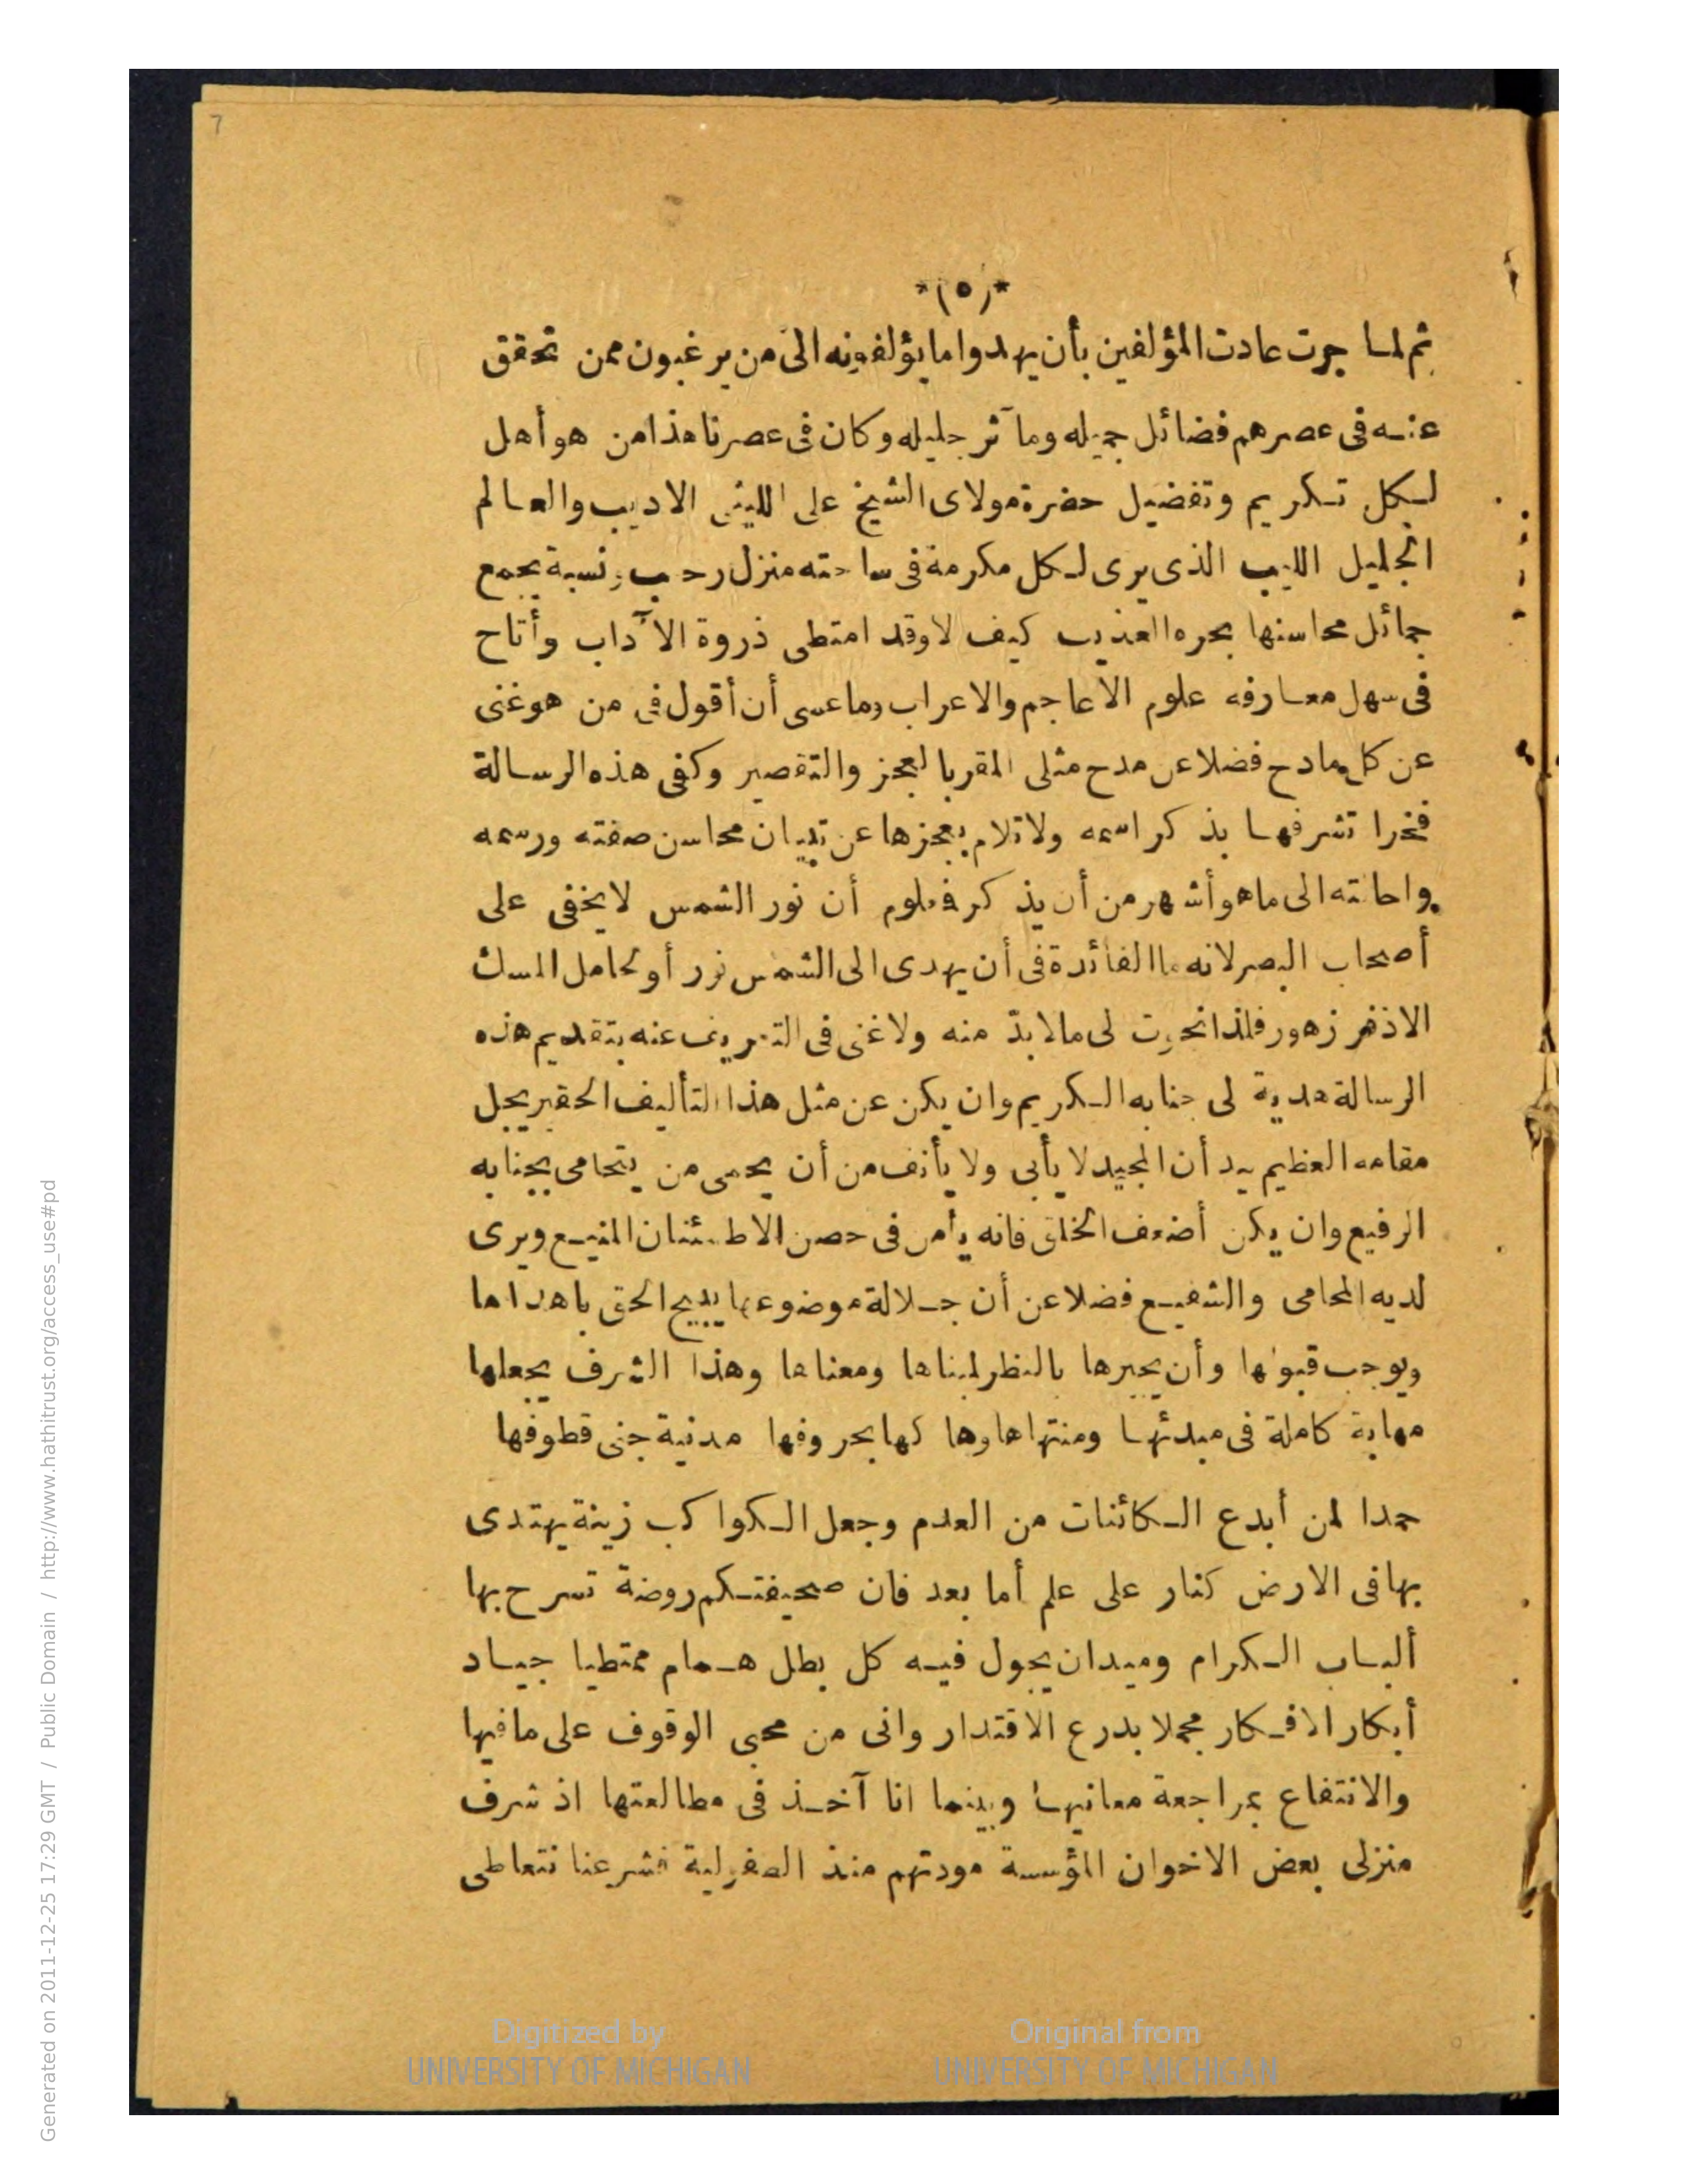 7
*(٥)*
ثم لما جرت عادت المؤلفين بأن يهدوا ما يؤلفونه الى من يرغبون ممن تحقق
عنه فى عصرهم فضائل جميله وما آثر جليله وكان فى عصرنا هذا من هو أهل
لكل تكريم وتفضيل حضرة مولاى الشيخ على الليثى الاديب والعالم
الجليل اللبيب الذى يرى لكل مكرمة فى ساحته منزل رحب ونسبة يجمع
جمائل محاسنها بحره العذيب كيف لا وقد امتطى ذروة الآداب وأتاح
فى سهل معارفه علوم الاعاجم والاعراب وما عسى أن أقول فى من هو غنى
عن كل مادح فضلا عن مدح مثلى المقر بالعجز والتقصير وكفى هذه الرسالة
فخرا تشرفها بذكر اسمه ولا تلام بعجزها عن تبيان محاسن صفته ورسمه
واحالته الى ما هو أشهر من أن يذكر فعلوم أن نور الشمس لا يخفى على
أصحاب البصر لانه ما الفائدة فى أن يهدى الى الشمس نور أو لحامل المسك
الاذفر زهور فلذا نحوت لى مالا بدّ منه ولا غنى فى التعريف عنه بتقديم هذه
الرسالة هدية لى جنابه الكريم وان يكن عن مثل هذا التأليف الحقير يجل
مقامه العظيم بيد أن المجيد لا يأبى ولا يأنف من أن يحمى من يتحامى بجنابه
الرفيع وان يكن أضعف الخلق فانه يأمن فى حصن الاطمئنان المنيع ويرى
لديه المحامى والشفيع فضلا عن أن جلالة موضوعها يبيح الحق باهداها
ويوجب قبولها وأن يجبرها بالنظر لمبناها ومعناها وهذا الشرف يجعلها
مهابة كاملة فى مبدئها ومنتهاها وها كها بحروفها مدنية جنى قطوفها
حمدا لمن أبدع الكائنات من العدم وجعل الكواكب زينة يهتدى
بها فى الارض كنار على علم أما بعد فان صحيفتكم روضة تسرح بها
ألباب الكرام وميدان يجول فيه كل بطل همام ممتطيا جياد
أبكار الافكار مجملا بدرع الاقتدار وانى من محبى الوقوف على ما فيها
والانتفاع بمراجعة معانيها وبينما انا آخذ فى مطالعتها اذ شرف
منزلى بعض الاخوان المؤسسة مودتهم منذ الصغر لية فشرعنا نتعاطى
Digitized by
UNIVERSITY OF MICHIGAN
Original from
UNIVERSITY OF MICHIGAN
Generated on 2011-12-25 17:29 GMT / Public Domain / http://www.hathitrust.org/access_use#pd